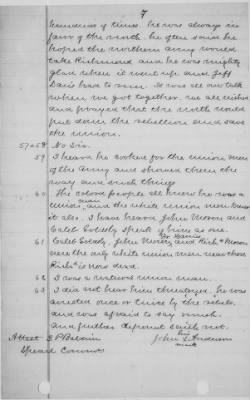 7
hundreds of times. he was always in
favor of the north. he often said he
hoped the northern army would
take Richmond and he was mighty
glad when it went up and Jeff
Davis had to run. It was all our talk
when we got together. we all wished
and prayed that the north would
put down the rebellion and save
the union.
57 & 58 No Sir.
59 I heard he cooked for the union men
of the Army and showed them the
way and such things
60 The colored people all knew he was a
union man, and the white union men knew
it also. I have heard John Moson and
Caleb speak of him as one.
61 Caleb John and Rich Moson
were the only white union men near there
Rich is now dead.
62 I was a union man.
63 I did not hear him threatened, he was
arrested once or twice by the rebels
and was afraid to say much.
And further deponent saith not.
Attest
his
John Anderson
mark
Special Commr